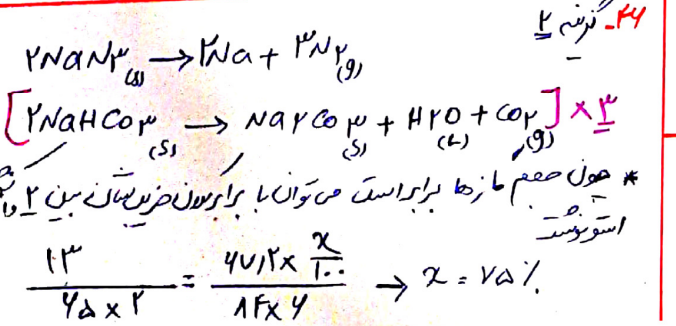 ۴۶- گزینه ۲
۲NaN۳(s) → ۲Na + ۳N۲(g)
[۲NaHCO۳(s) → Na۲CO۳(s) + H۲O(L) + CO۲(g)] × ۳
* چون حجم گازها برابر است می توان با برابر کردن ضریبشان بین ۲ واکنش
استو نوشت
۱۳ / ۶۵×۲ = ۶۷٫۲ × x/۱۰۰ / ۸۴×۶ → x = ۷۵٪